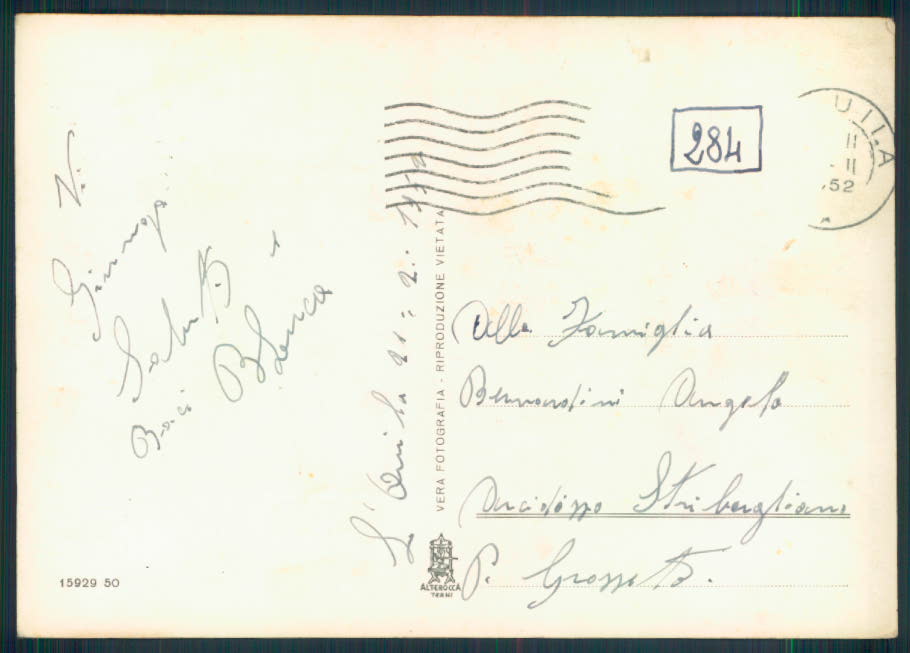 Giunga
Saluti e
Baci Bianca
L'Aquila 21=2=1952
VERA FOTOGRAFIA - RIPRODUZIONE VIETATA
284
UILA
II
II
.52
Alla Famiglia
Bernardini Angelo
Arcidosso Stribugliano
P. Grosseto.
15929 50
ALTEROCCA
TERNI